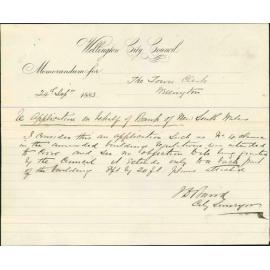 Wellington City Council
Memorandum for
The Town Clerk
Wellington
24th Sept 1883
Application on behalf of Bank of New South Wales
I consider this an application such as No 4 clause
in the amended building regulations was intended
to cover and see no objection to its being granted
by the Council it extends only to a back part
of the building 9ft by 20ft plans attached
City Surveyor